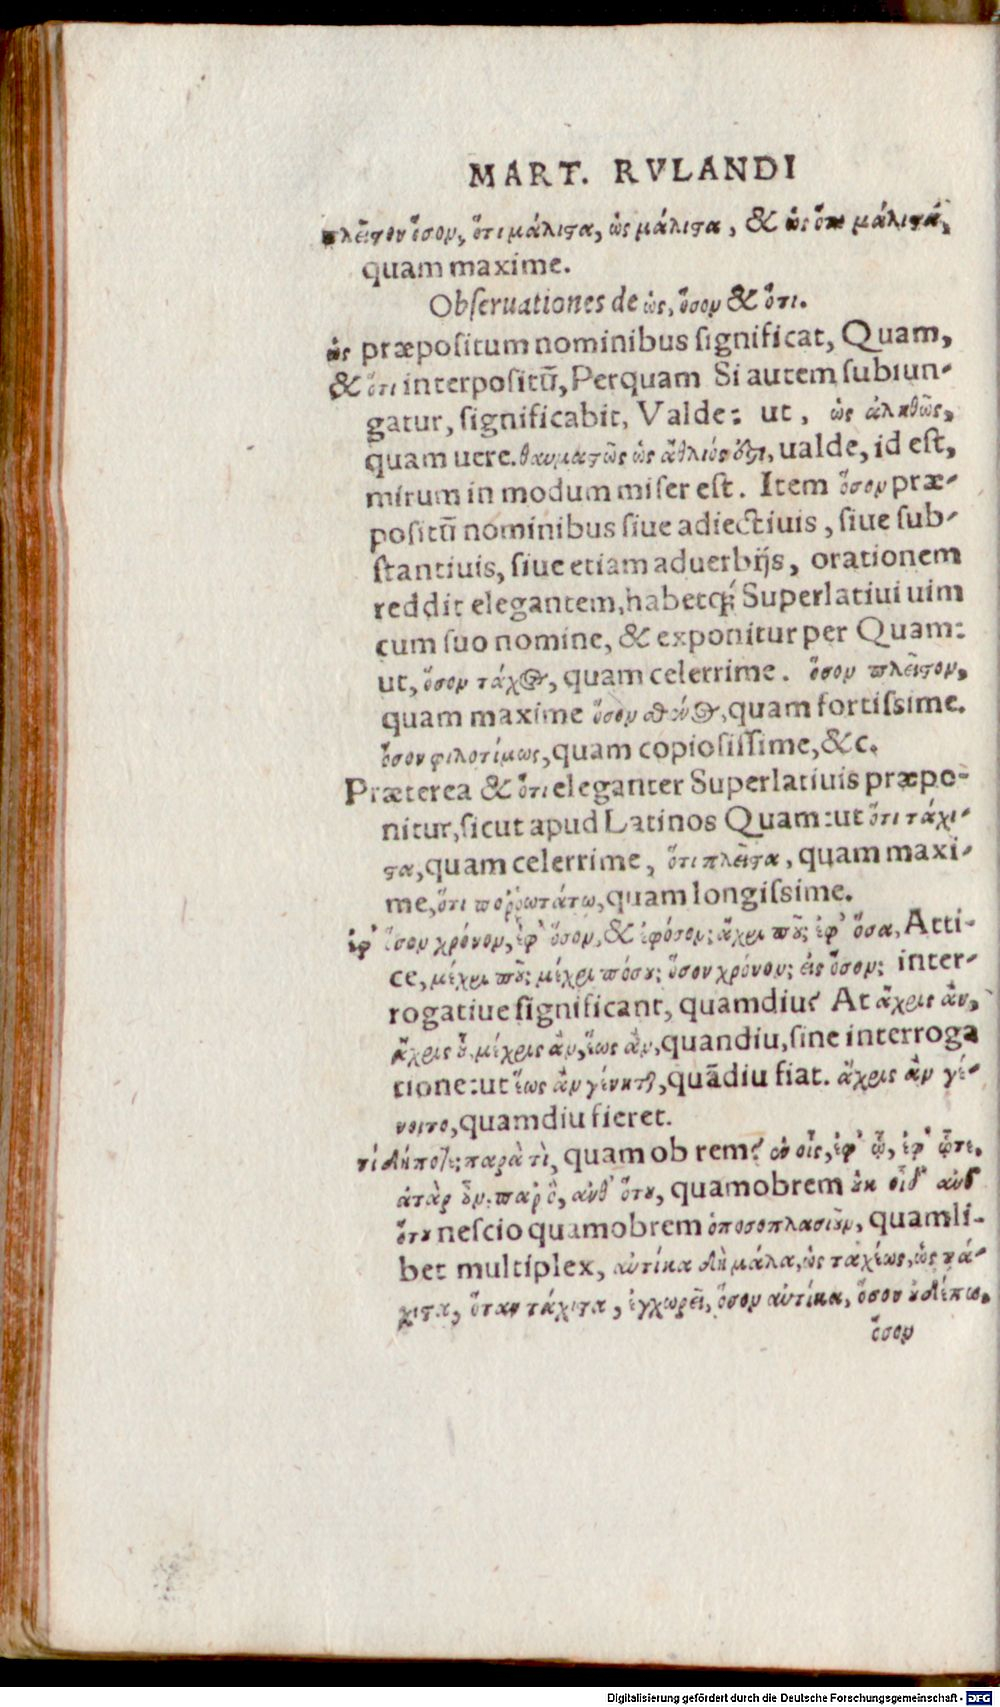 MART. RVLANDI
πλεῖϛον ὅσον, ὅτι μάλιϛα, ὡς μάλιϛα, & ὡς ὅτι μάλιϛα,
quam maxime.
Obſeruationes de ὡς, ὅσον & ὅτι.
ὡς præpoſitum nominibus ſignificat, Quam,
& ὅτι interpoſitū, Perquam Si autem ſubiun-
gatur, ſignificabit, Valde: ut, ὡς ἀληθῶς,
quam uere. θαυμαϛῶς ὡς ἄθλιός ἐϛι, ualde, id eſt,
mirum in modum miſer eſt. Item ὅσον præ-
poſitū nominibus ſiue adiectiuis, ſiue ſub-
ſtantiuis, ſiue etiam aduerbijs, orationem
reddit elegantem, habetq́; Superlatiui uim
cum ſuo nomine, & exponitur per Quam:
ut, ὅσον τάχος, quam celerrime. ὅσον πλεῖϛον,
quam maxime ὅσον σθένος, quam fortiſsime.
ὅσον φιλοτίμως, quam copioſiſſime, &c.
Præterea & ὅτι eleganter Superlatiuis præpo-
nitur, ſicut apud Latinos Quam: ut ὅτι τάχι-
ϛα, quam celerrime, ὅτι πλεῖϛα, quam maxi-
me, ὅτι ποῤῥωτάτω, quam longiſsime.
ἐφ' ὅσον χρόνον, ἐφ' ὅσον, & ἐφόσον; ἄχρι ποῦ; ἐφ' ὅσα, Atti-
ce, μέχρι ποῦ; μέχρι πόσου; ὅσον χρόνον; εἰς ὅσον; inter-
rogatiue ſignificant, quamdiu? At ἄχρις ἂν,
ἄχρις οὗ, μέχρις ἂν, ἕως ἂν, quandiu, ſine interroga
tione: ut ἕως ἂν γένηται, quādiu fiat. ἄχρις ἂν γέ-
νοιτο, quamdiu fieret.
τί δήποτε; παρὰ τὶ, quam ob rem? ἐν οἷς, ἐφ' ᾧ, ἐφ' ᾧτε,
ἀτὰρ οὖν, παρ' ὃ, ἀνθ' ὅτου, quamobrem οὐκ οἶδ' ἀνθ'
ὅτου neſcio quamobrem ὁποσοπλασιοῦν, quamli-
bet multiplex, αὐτίκα δὴ μάλα, ὡς ταχέως, ὡς τά-
χιϛα, ὅταν τάχιϛα, ἐγχωρεῖ, ὅσον αὐτίκα, ὅσον οὐδέπω,
ὅσον
Digitalisierung gefördert durch die Deutsche Forschungsgemeinschaft - DFG